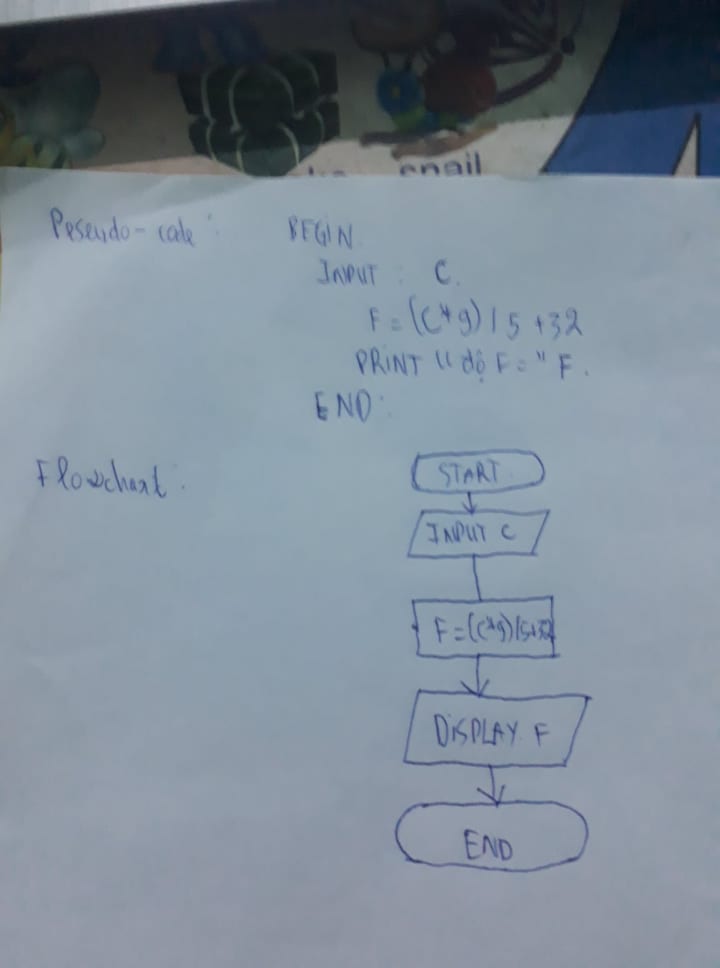 snail
Peseudo-code :
BEGIN
INPUT : C.
F = (C*9) / 5 +32
PRINT " độ F = " F.
END :
Flowchart :
START
INPUT C
F = (C*9) / 5+32
DISPLAY F
END